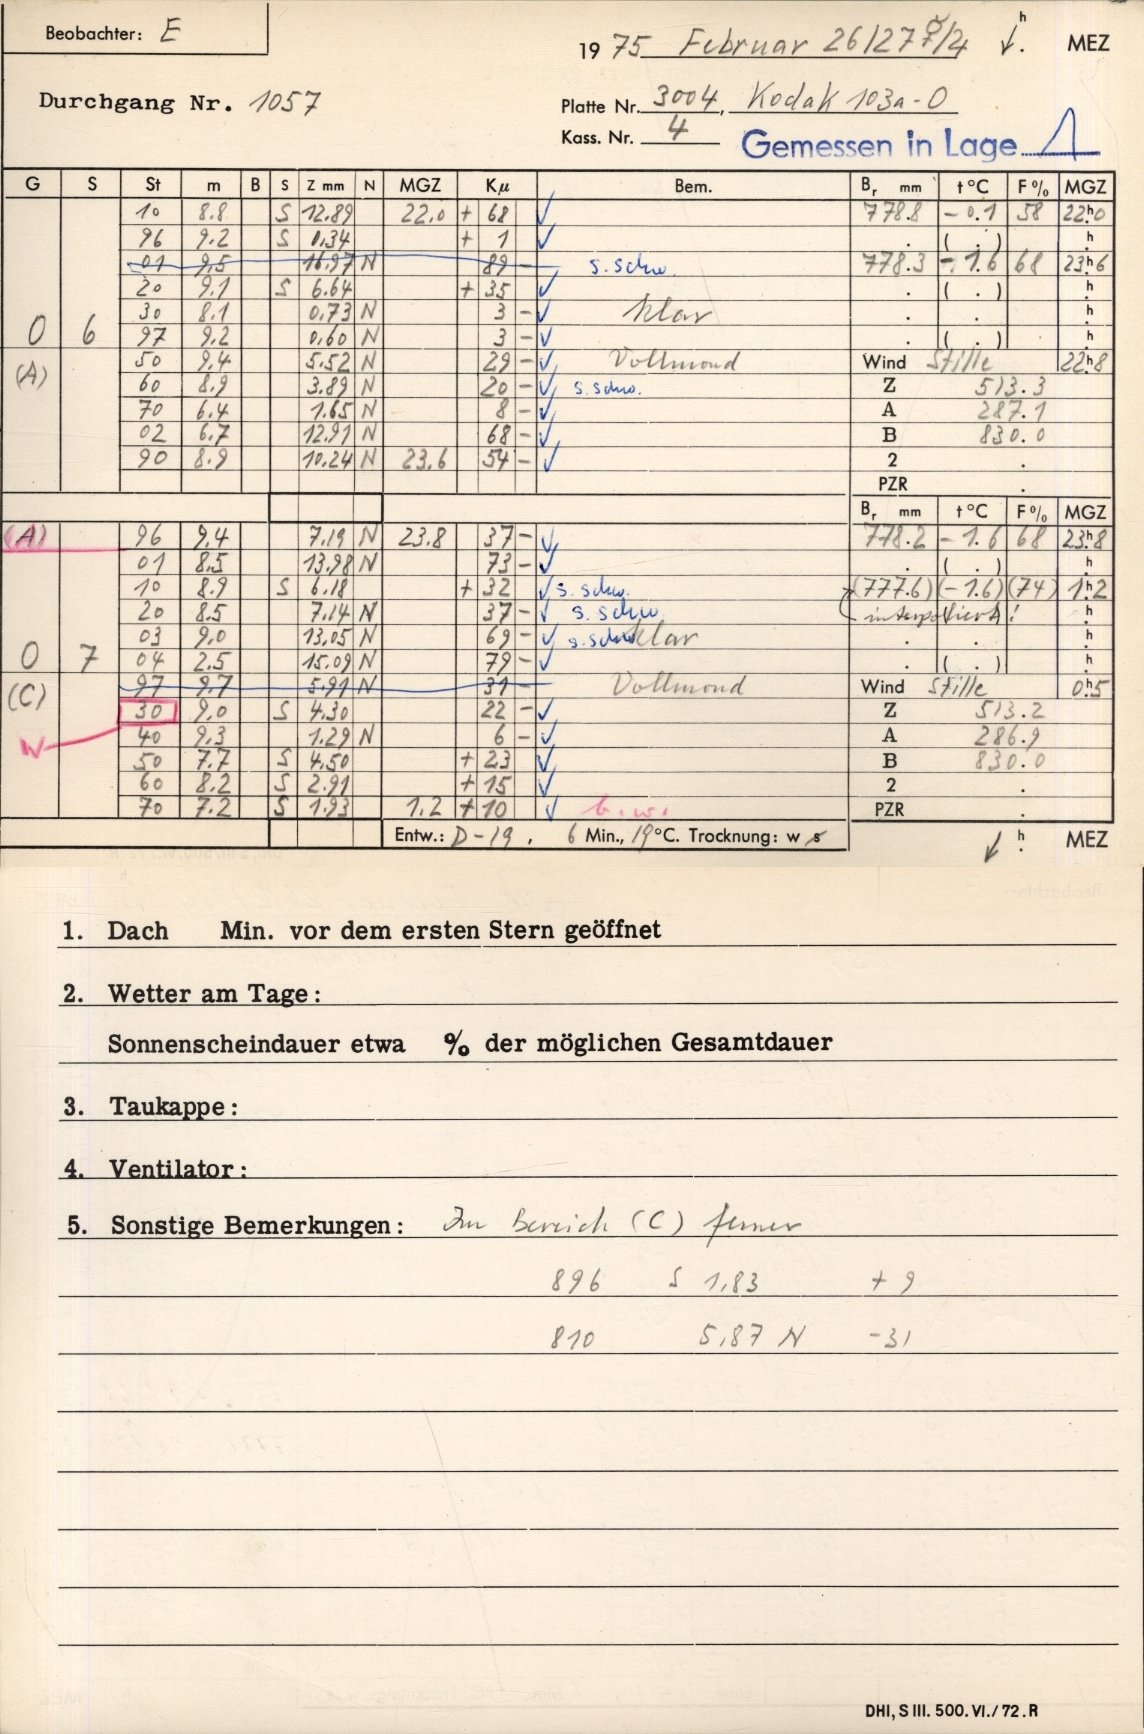 Beobachter: E
1975 Februar 26/27 ☿/♃ h MEZ
Durchgang Nr. 1057
Platte Nr. 3004, Kodak 103a-O
Kass. Nr. 4 Gemessen in Lage
G S St m B S Z mm N MGZ Kμ Bem. Br mm t °C F % MGZ
10 8.8 S 12.89 22.0 + 68 ✓ 778.8 - 0.1 58 22h0
96 9.2 S 0.34 + 1 ✓ . ( . ) h
01 9.5 16.97 N 89 - s. schw. 778.3 - 1.6 68 23h6
20 9.1 S 6.64 + 35 ✓ . ( . ) h
30 8.1 0.73 N 3 - ✓ klar . . h
0 6 97 9.2 0.60 N 3 - ✓ . ( . ) h
(A) 50 9.4 5.52 N 29 - ✓ Vollmond Wind Stille 22h8
60 8.9 3.89 N 20 - ✓ s. schw. Z 513.3
70 6.4 1.65 N 8 - ✓ A 287.1
02 6.7 12.91 N 68 - ✓ B 830.0
90 8.9 10.24 N 23.6 54 - ✓ 2 .
PZR .
Br mm t °C F % MGZ
(A) 96 9.4 7.19 N 23.8 37 - ✓ 778.2 - 1.6 68 23h8
01 8.5 13.98 N 73 - ✓ . ( . ) h
10 8.9 S 6.18 + 32 ✓ s. schw. (777.6) (- 1.6) (74) 1h2
20 8.5 7.14 N 37 - ✓ s. schw. interpoliert! h
03 9.0 13.05 N 69 - ✓ s. schw klar . . h
0 7 04 2.5 15.09 N 79 - ✓ . ( . ) h
(C) 97 9.7 5.91 N 31 - Vollmond Wind Stille 0h5
30 9.0 S 4.30 22 - ✓ Z 513.2
W 40 9.3 1.29 N 6 - ✓ A 286.9
50 7.7 S 4.50 + 23 ✓ B 830.0
60 8.2 S 2.91 + 15 ✓ 2 .
70 7.2 S 1.93 1.2 + 10 ✓ b.w. PZR .
Entw.: D-19 , 6 Min., 19°C. Trocknung: w s h MEZ
1. Dach Min. vor dem ersten Stern geöffnet
2. Wetter am Tage:
Sonnenscheindauer etwa % der möglichen Gesamtdauer
3. Taukappe:
4. Ventilator:
5. Sonstige Bemerkungen: Im Bereich (C) ferner
896 S 1,83 + 9
810 5,87 N -31
DHI, S III. 500. VI./72. R